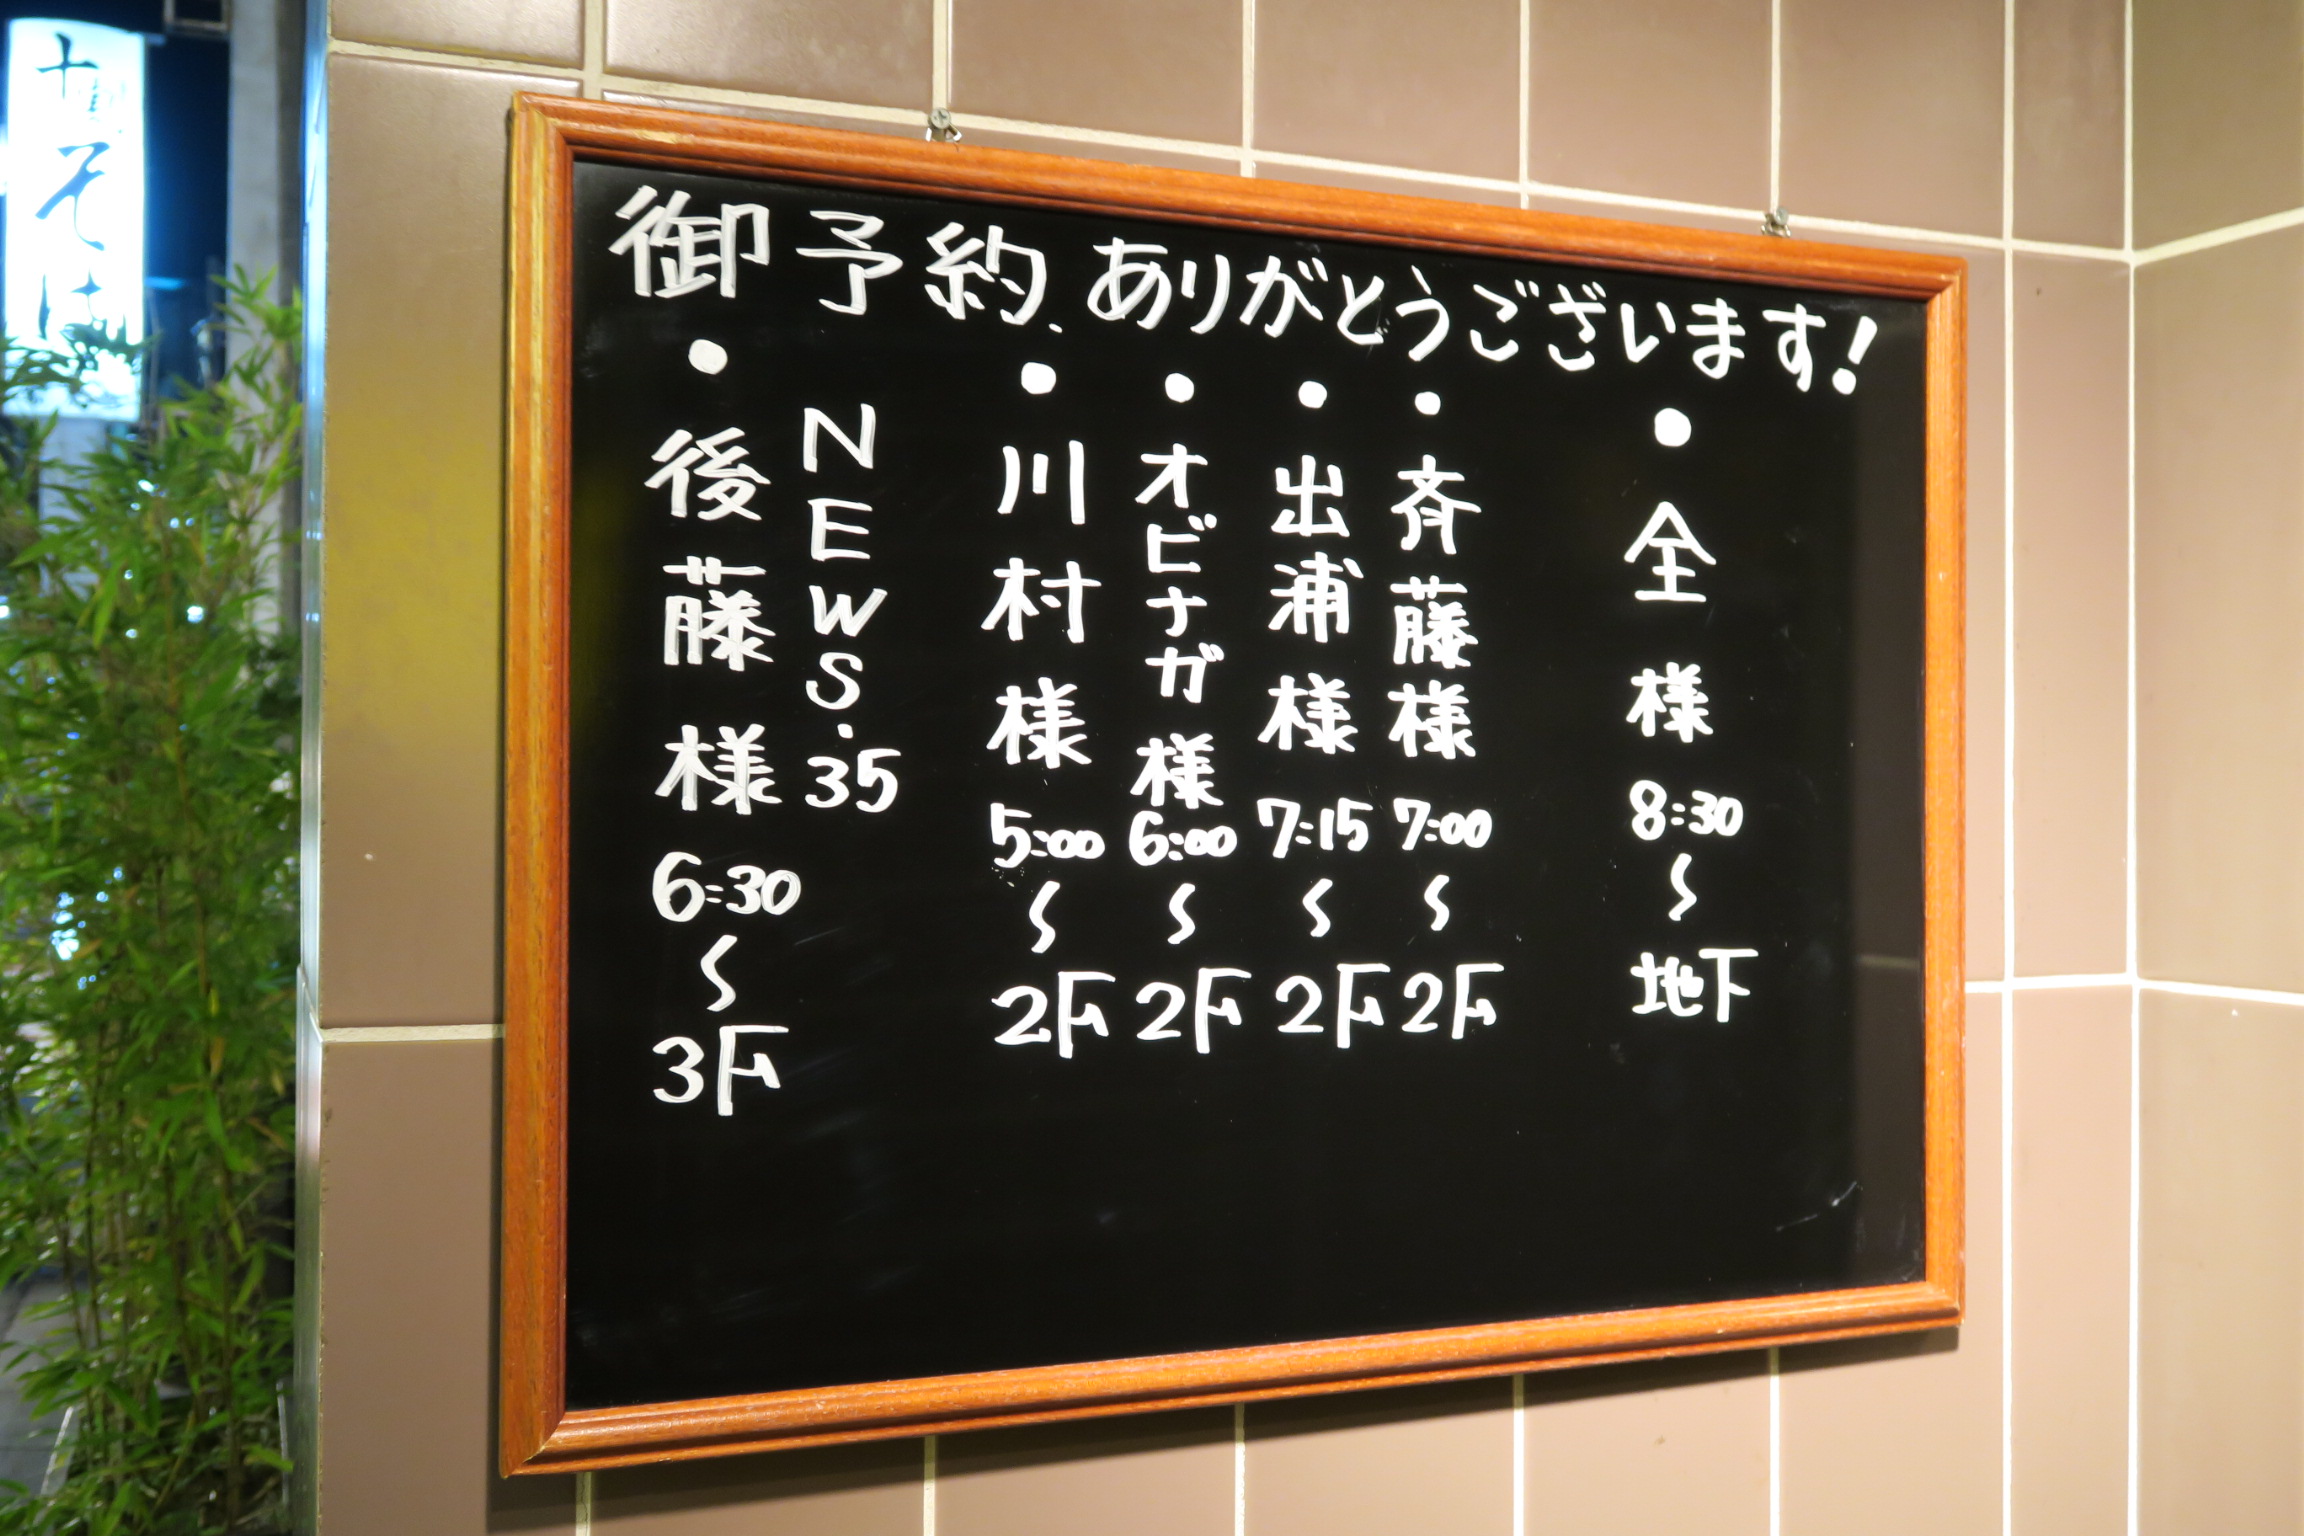 御予約、ありがとうございます!
・全様 8:30～地下
・斉藤様 7:00～2F
・出浦様 7:15～2F
・オビナガ様 6:00～2F
・川村様 5:00～2F
NEWS.35
・後藤様 6:30～3F
そば